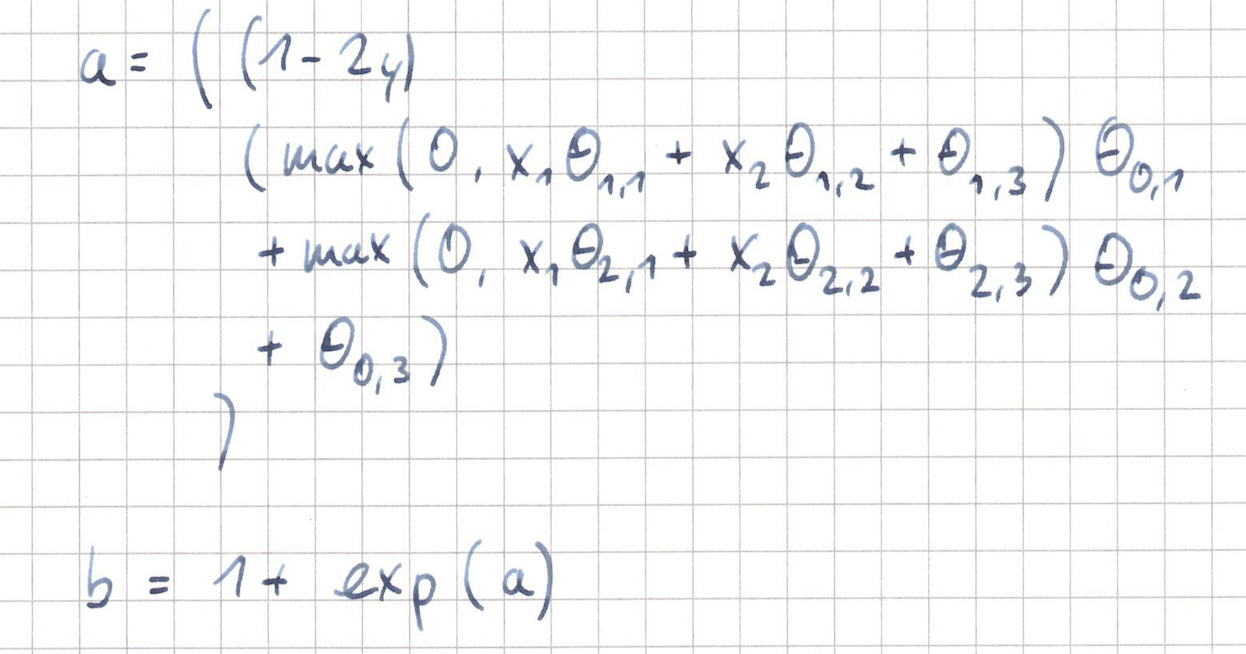 a = ( (1 - 2y)
( max ( 0, x₁ Θ₁,₁ + x₂ Θ₁,₂ + Θ₁,₃ ) Θ₀,₁
+ max ( 0, x₁ Θ₂,₁ + x₂ Θ₂,₂ + Θ₂,₃ ) Θ₀,₂
+ Θ₀,₃ )
)
b = 1 + exp ( a )